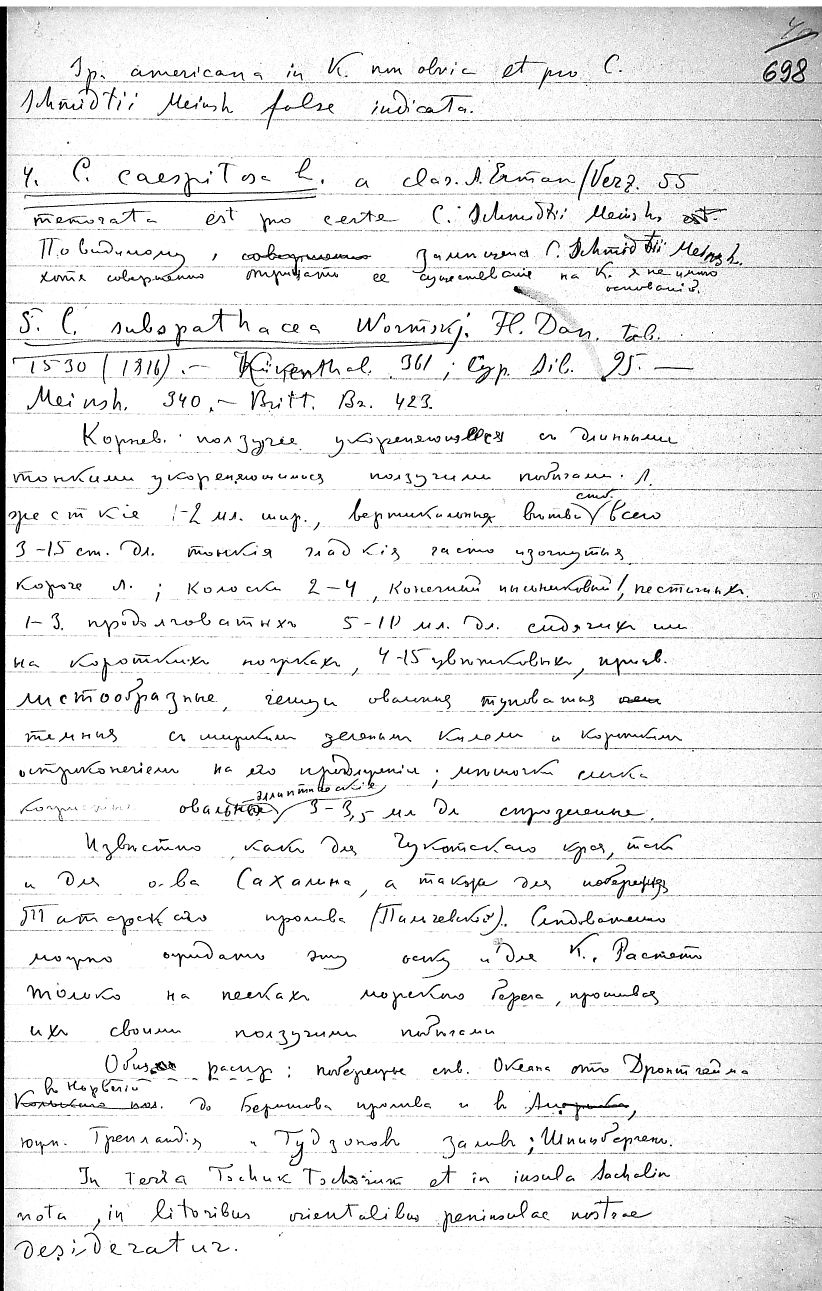 698
Sp. americana in K. non obvia et pro C.
Schmidtii Meinsh false indicata.
4. C. caespitosa L. a clar. A. Erman (Verz. 55
memorata est pro certe C. Schmidtii Meinsh.
Повидимому, совершенно замѣчена C. Schmidtii Meinsh.
хотя совершенно отрицать ее существованіе на К. я не имѣю
основаній.
5. C. subspathacea Wormskj. Fl. Dan. tab.
1530 (1816). — Kükenthal. 361; Cyp. Sib. 95. —
Meinsh. 340. — Britt. Br. 423.
Корнев. ползучее укореняющееся съ длинными
тонкими укореняющимися ползучими побѣгами. Л.
жесткіе 1-2 мл. шир., вертикальныя стеб. всего
3-15 cm. дл. тонкія гладкія часто изогнутыя
короче л.; колоски 2-4, конечный тычинковый, пестичныхъ
1-3. продолговатыхъ 5-10 мл. дл. сидячихъ или
на короткихъ ножкахъ, 4-15 цвѣтковыхъ, присв.
листообразные, чешуи овальныя туповатыя
темныя съ широкимъ зеленымъ килемъ и короткимъ
остроконечіемъ на его продолженіи; мѣшочки слегка
овальные эллиптическіе 3-3,5 мл дл сѣрозеленые.
Извѣстно какъ для Чукотскаго края, такъ
и для о-ва Сахалина, а также для побережья
Татарскаго пролива (Пальчевскій). Слѣдовательно
можно ожидать эту осоку и для К. Растетъ
только на пескахъ морского берега, прошивая
ихъ своими ползучими побѣгами
Общ. распр: побережье сѣв. Океана отъ Дронтгейма
въ Норвегіи до Берингова пролива и въ
южн. Гренландія и Гудзоновъ заливъ; Шпицбергенъ.
In terra Tschuktschorum et in insula Sachalin
nota, in litoribus orientalibus peninsulae nostrae
desideratur.